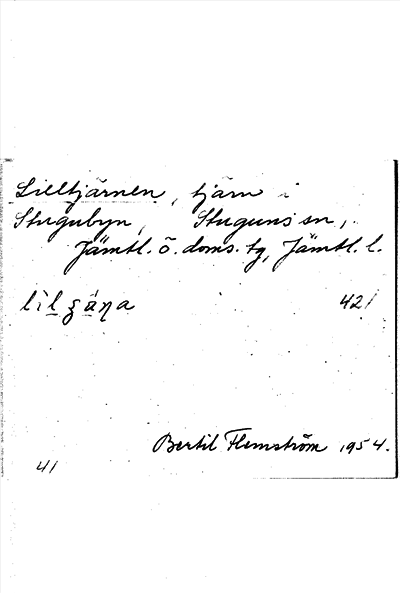 Lilltjärnen, tjärn i
Stugubyn, Stuguns sn,
Jämtl. ö. doms. tg, Jämtl. l.
421
Bertil Flemström 1954.
41